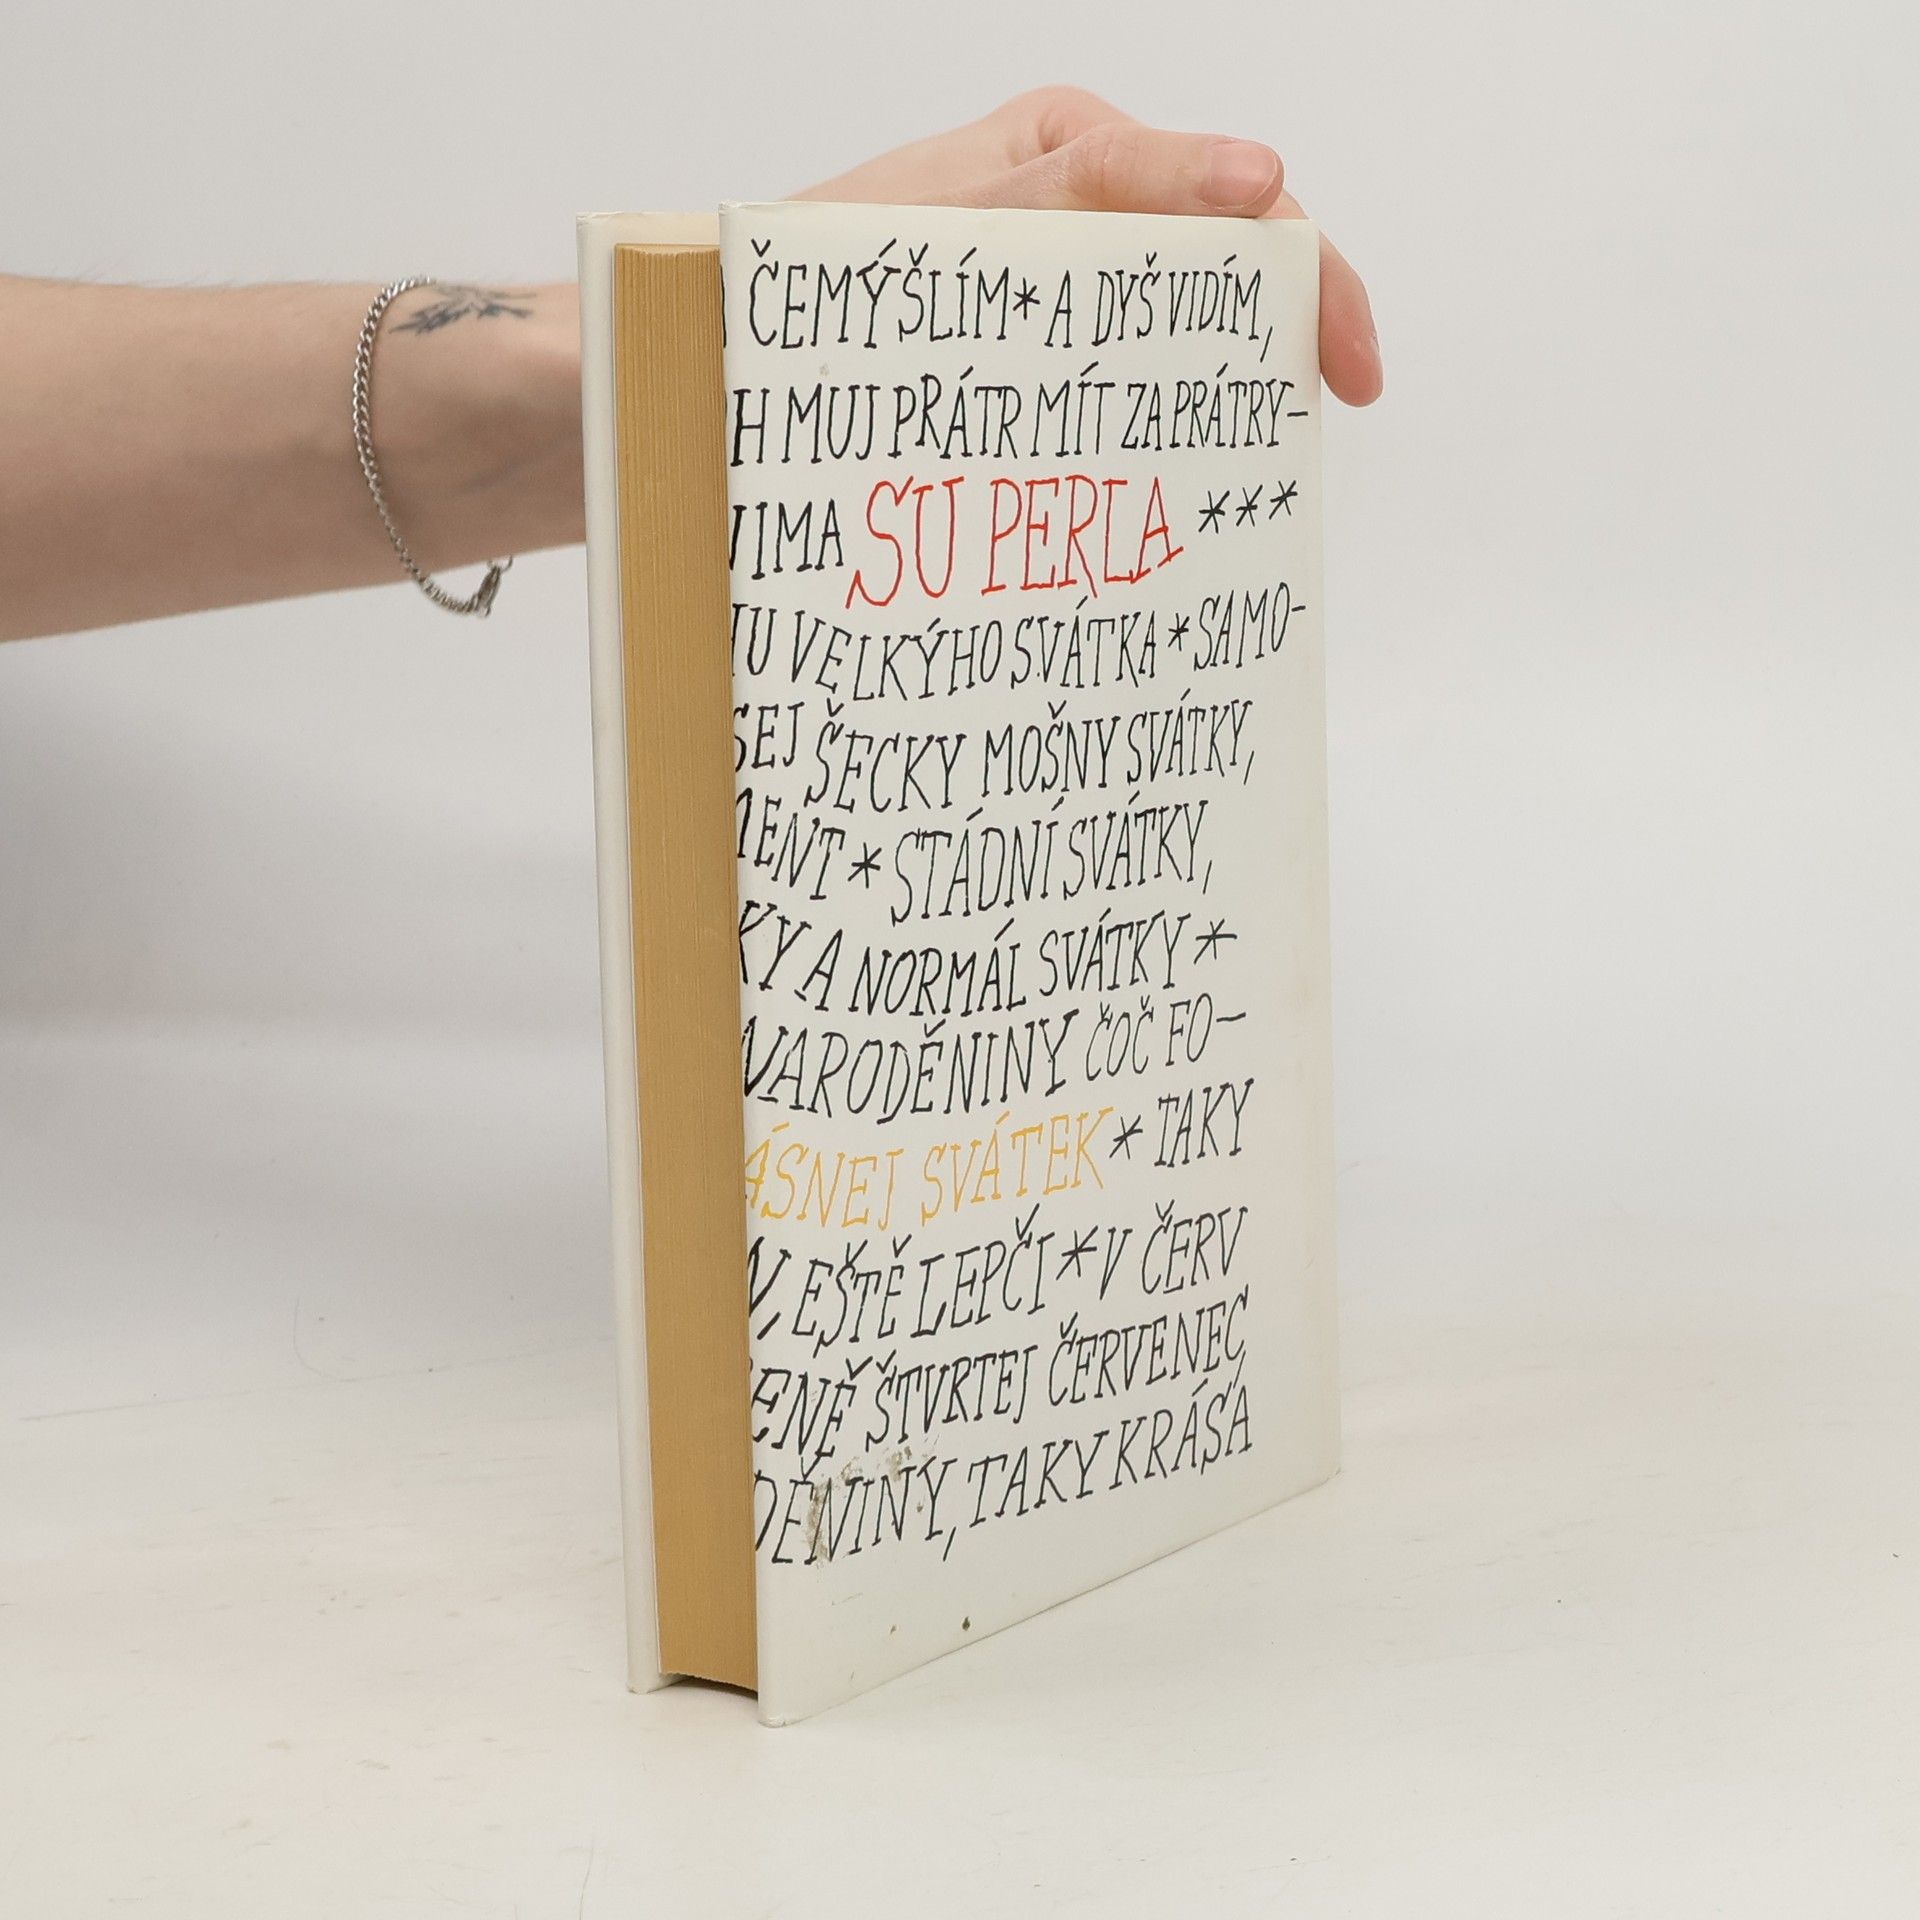 ČEMÝŠLÍM * A DYŠ VIDÍM,
H MUJ PRÁTR MÍT ZA PRÁTRY-
IMA SU PERLA ***
U VELKÝHO SVÁTKA * SAMO-
SEJ ŠECKY MOŠNY SVÁTKY,
ENT * STÁDNÍ SVÁTKY,
KY A NORMÁL SVÁTKY *
NARODĚNINY ČOČ FO-
ÁSNEJ SVÁTEK * TAKY
EŠTĚ LEPČI * V ČERV
ENĚ ŠTVRTEJ ČERVENEC,
DĚNINY, TAKY KRÁSA